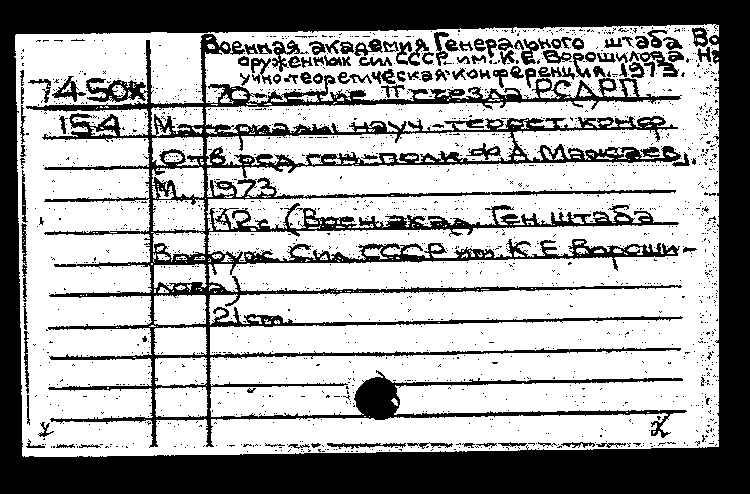 Военная академия Генерального штаба Во
оруженных сил СССР им. К.Е. Ворошилова. На
учно-теоретическая конференция. 1973.
74.50к 70-летие II съезда РСДРП.
154 Материалы науч.-теорет. конф.
[Отв. ред. ген.-полк. Ф.А. Мажаев].
М., 1973
142 с. (Воен. акад. Ген. штаба
Вооруж. Сил СССР им. К.Е. Вороши-
лова)
21 см.